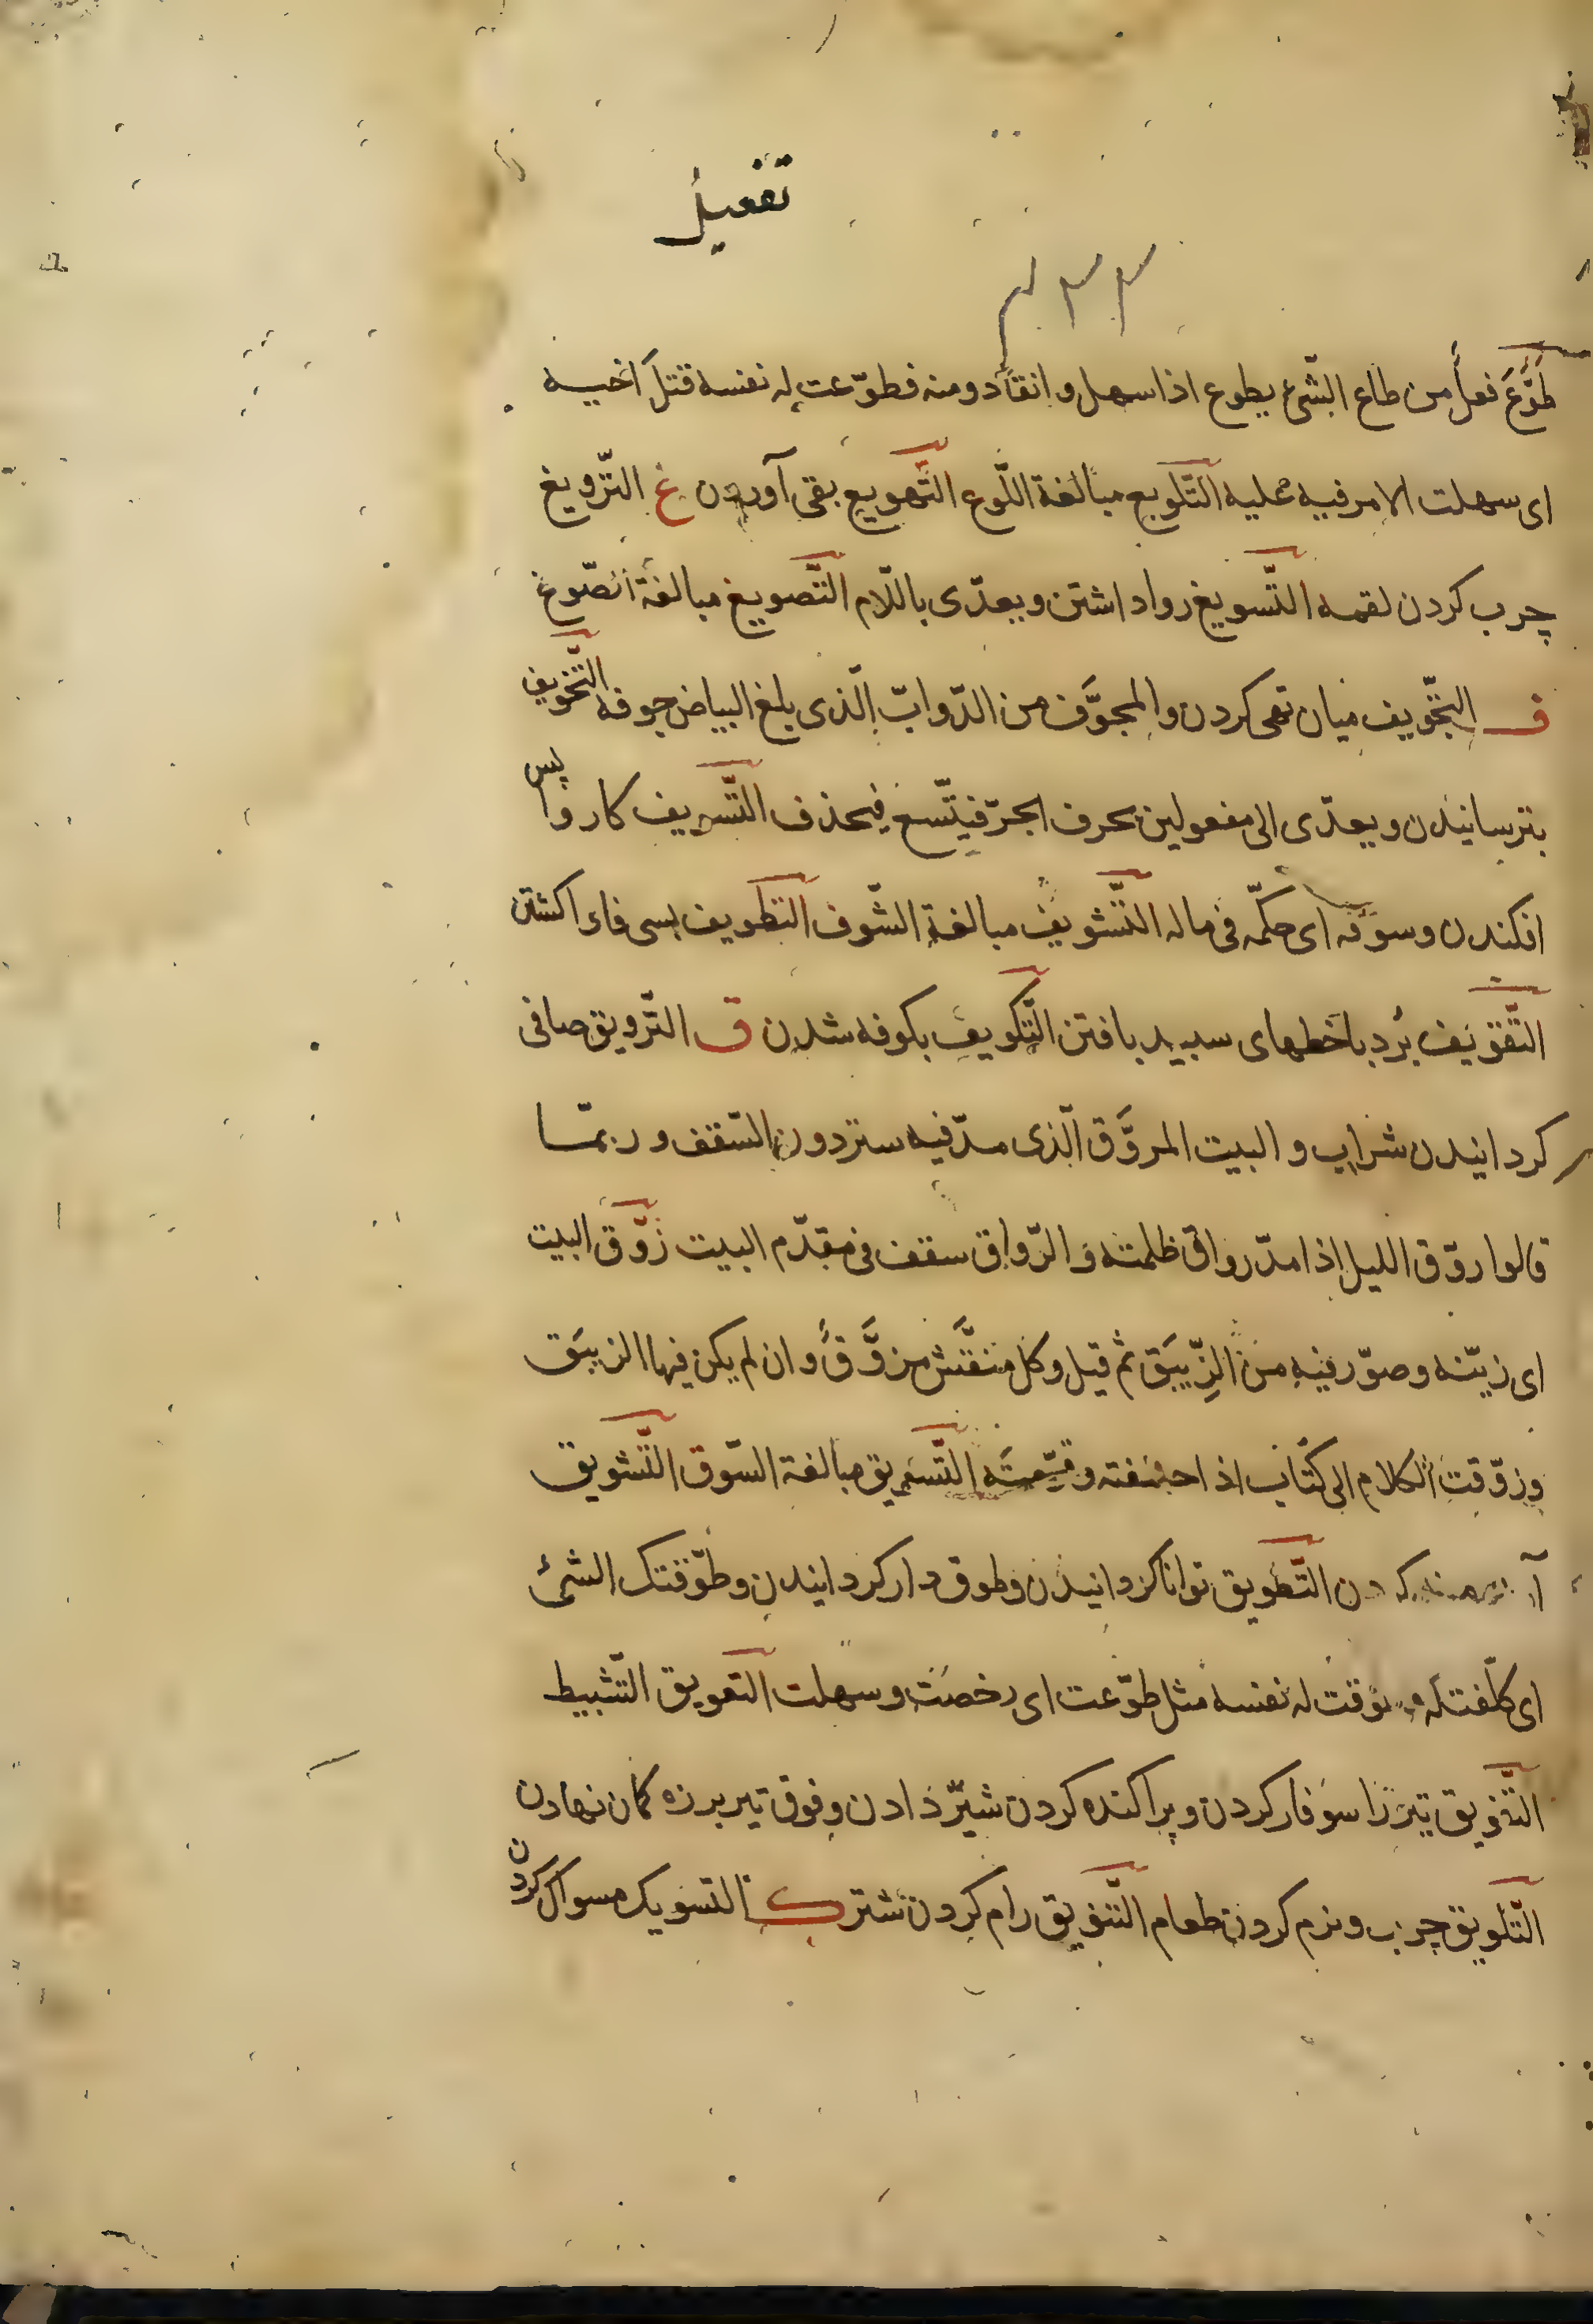 تفعیل
۳۳۳
طَوَّعَ فعل من طاع الشّئ یطوع اذا سهل و انقاد ومنه فطوّعت له نفسه قتل اخیه
ای سهلت الامر فیه علیه التّلویع مبالغة اللّوع التّهویع بقی آوردن غ التّرویغ
چرب کردن لقمه التّسویغ روا داشتن ویعدّی باللّام التّصویغ مبالغة الصّوغ
ف التّجویف میان تهی کردن والمجوَّف من الدّوابّ الّذی بلغ البیاض جوفه التّخویف
بترسانیدن ویعدّی الی مفعولین بحرف الجرّ فیتّسع فیحذف التّسویف کار واپس
افکندن وسوّفه ای حکّمه فی ماله التّشویف مبالغة الشّوف التّطویف بسی فاء اکشتن
التّفویف بُرد باخطهای سبید بافتن التّکویف بکوفه شدن ق التّرویق صافی
کردانیدن شراب و البیت المروَّق الّذی مدّ فیه ستر دون السّقف وربمّا
قالوا روّق اللیل اذا مدّ رواق ظلمته والرّواق سقف فی مقدّم البیت زوّق البیت
ای زیّنه وصوّر فیه من الزّیبَق ثم قیل وکل منقّش مزوَّق وان لم یکن فیها الزیبَق
وزوّقت الکلام الی کتاب اذا حسّنته وقوّمته التّسویق مبالغة السّوق التّشویق
کردن التّطویق توانا کردانیدن وطوق دار کردانیدن وطوّقتک الشئ
ای کلّفتکه وطوّقت له نفسه مثل طوّعت ای رخصت وسهلت التعویق التّثبیط
التّفویق تیر را سوفار کردن وپراکنده کردن شیر دادن وفوق تیر بر زه کمان نهادن
التّلویق چرب ونرم کردن طعام التّنویق رام کردن شتر ک التسویک مسواک کردن